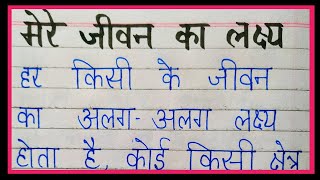 मेरे जीवन का लक्ष्य
हर किसी के जीवन
का अलग-अलग लक्ष्य
होता है, कोई किसी क्षेत्र